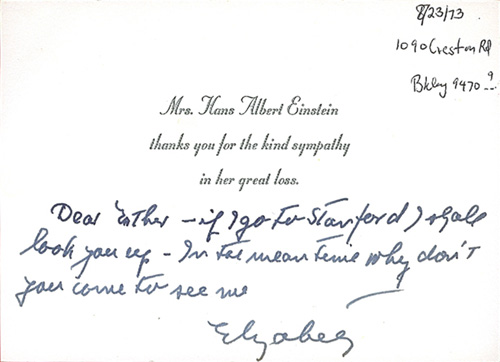 8/23/73
1090 Creston Rd
Bkley 9470
Mrs. Hans Albert Einstein
thanks you for the kind sympathy
in her great loss.
Dear Esther - if I go to Stanford I shall
look you up - In the mean time why don't
you come to see me
Elizabeth